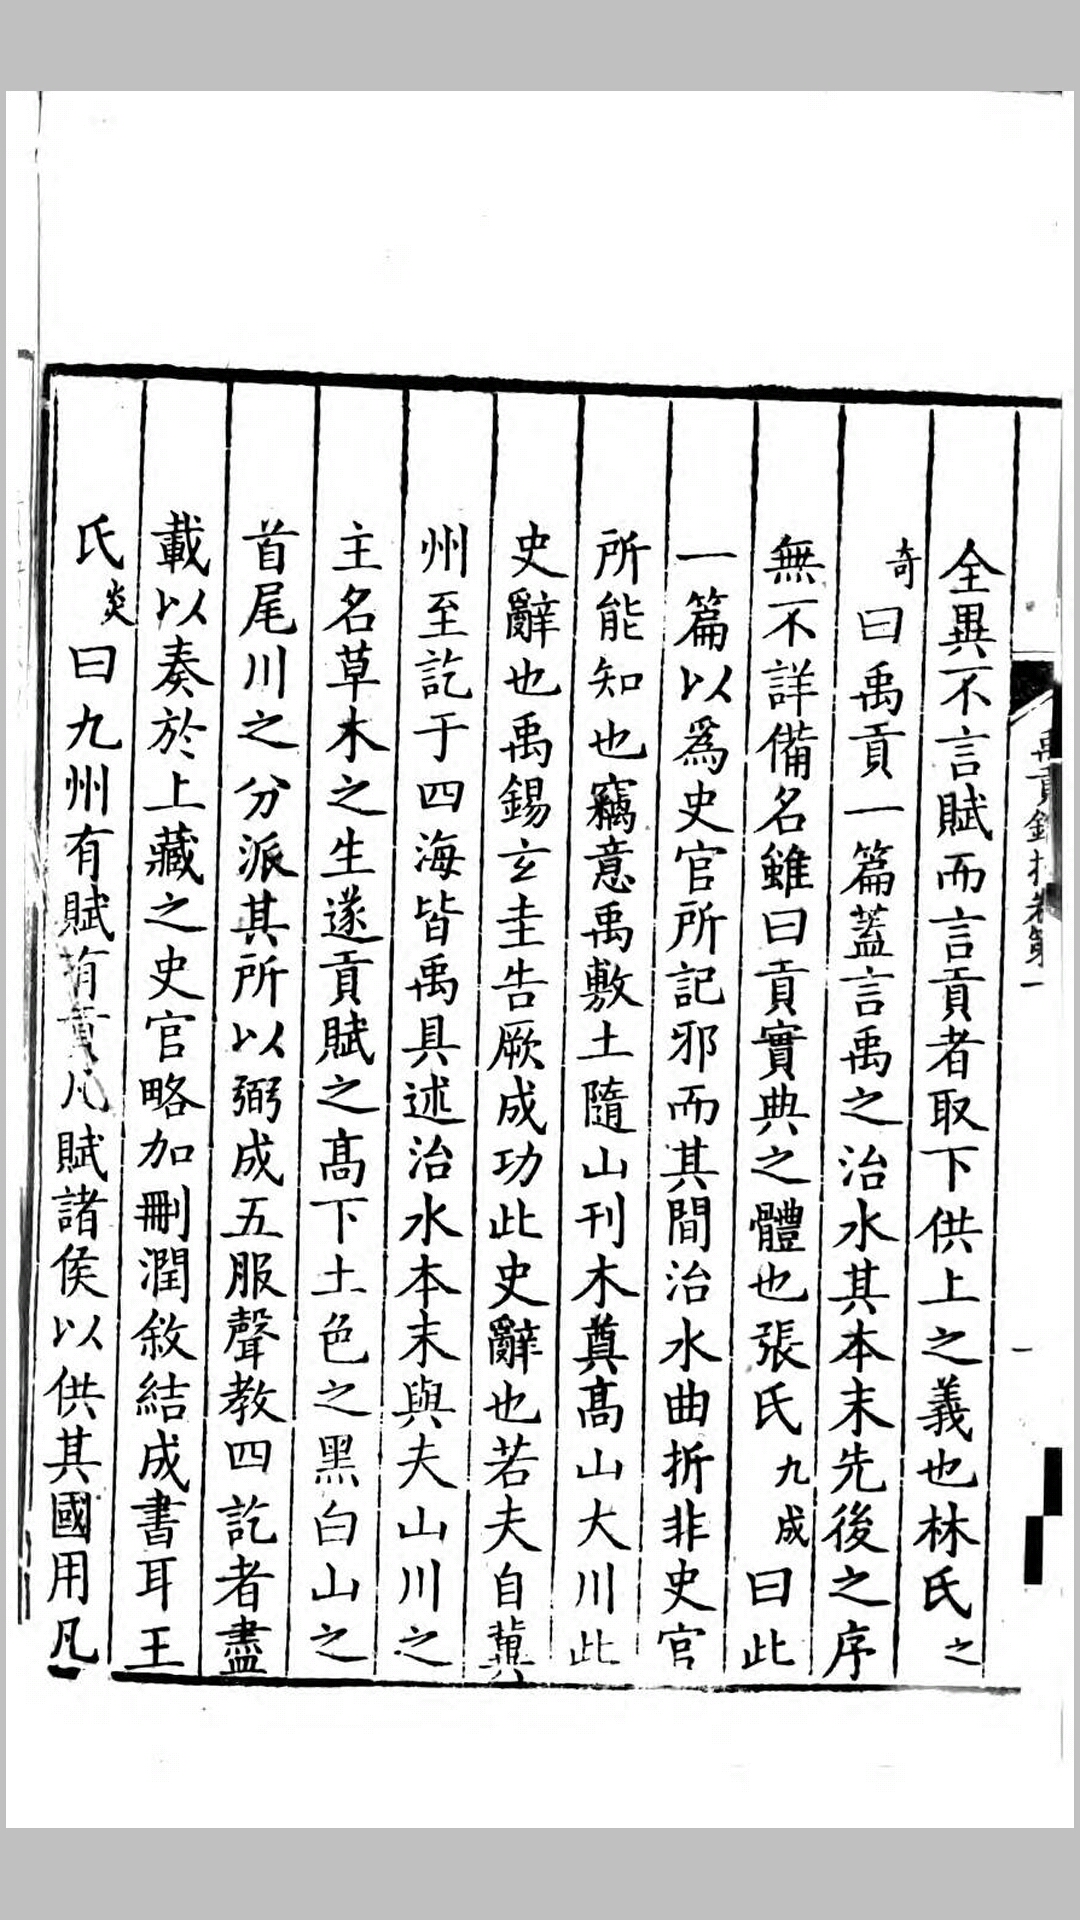 全異不言賦而言貢者取下供上之義也林氏之
奇曰禹貢一篇蓋言禹之治水其本末先後之序
無不詳備名雖曰貢實典之體也張氏九成曰此
一篇以爲史官所記邪而其間治水曲折非史官
所能知也竊意禹敷土隨山刊木奠高山大川此
史辭也禹錫玄圭告厥成功此史辭也若夫自冀
州至訖于四海皆禹具述治水本末與夫山川之
主名草木之生遂貢賦之高下土色之黑白山之
首尾川之分派其所以弼成五服聲教四訖者盡
載以奏於上藏之史官略加刪潤敘結成書耳王
氏炎曰九州有賦有貢凡賦諸侯以供其國用凡